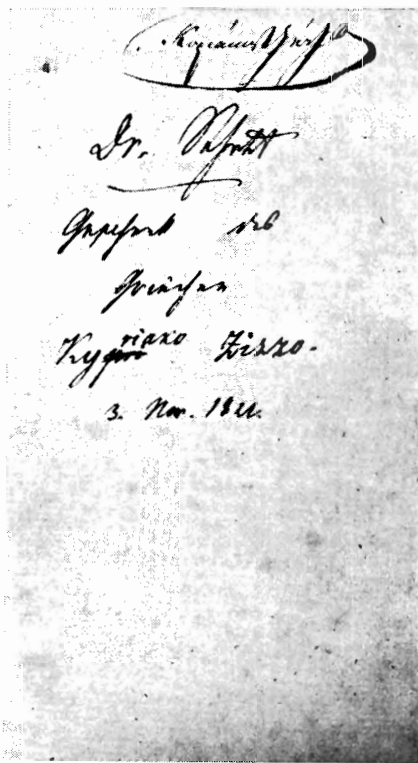 Dr. Schott
Geschenk des
Griechen
Kyriako Zizzo.
3. Nov. 1821.